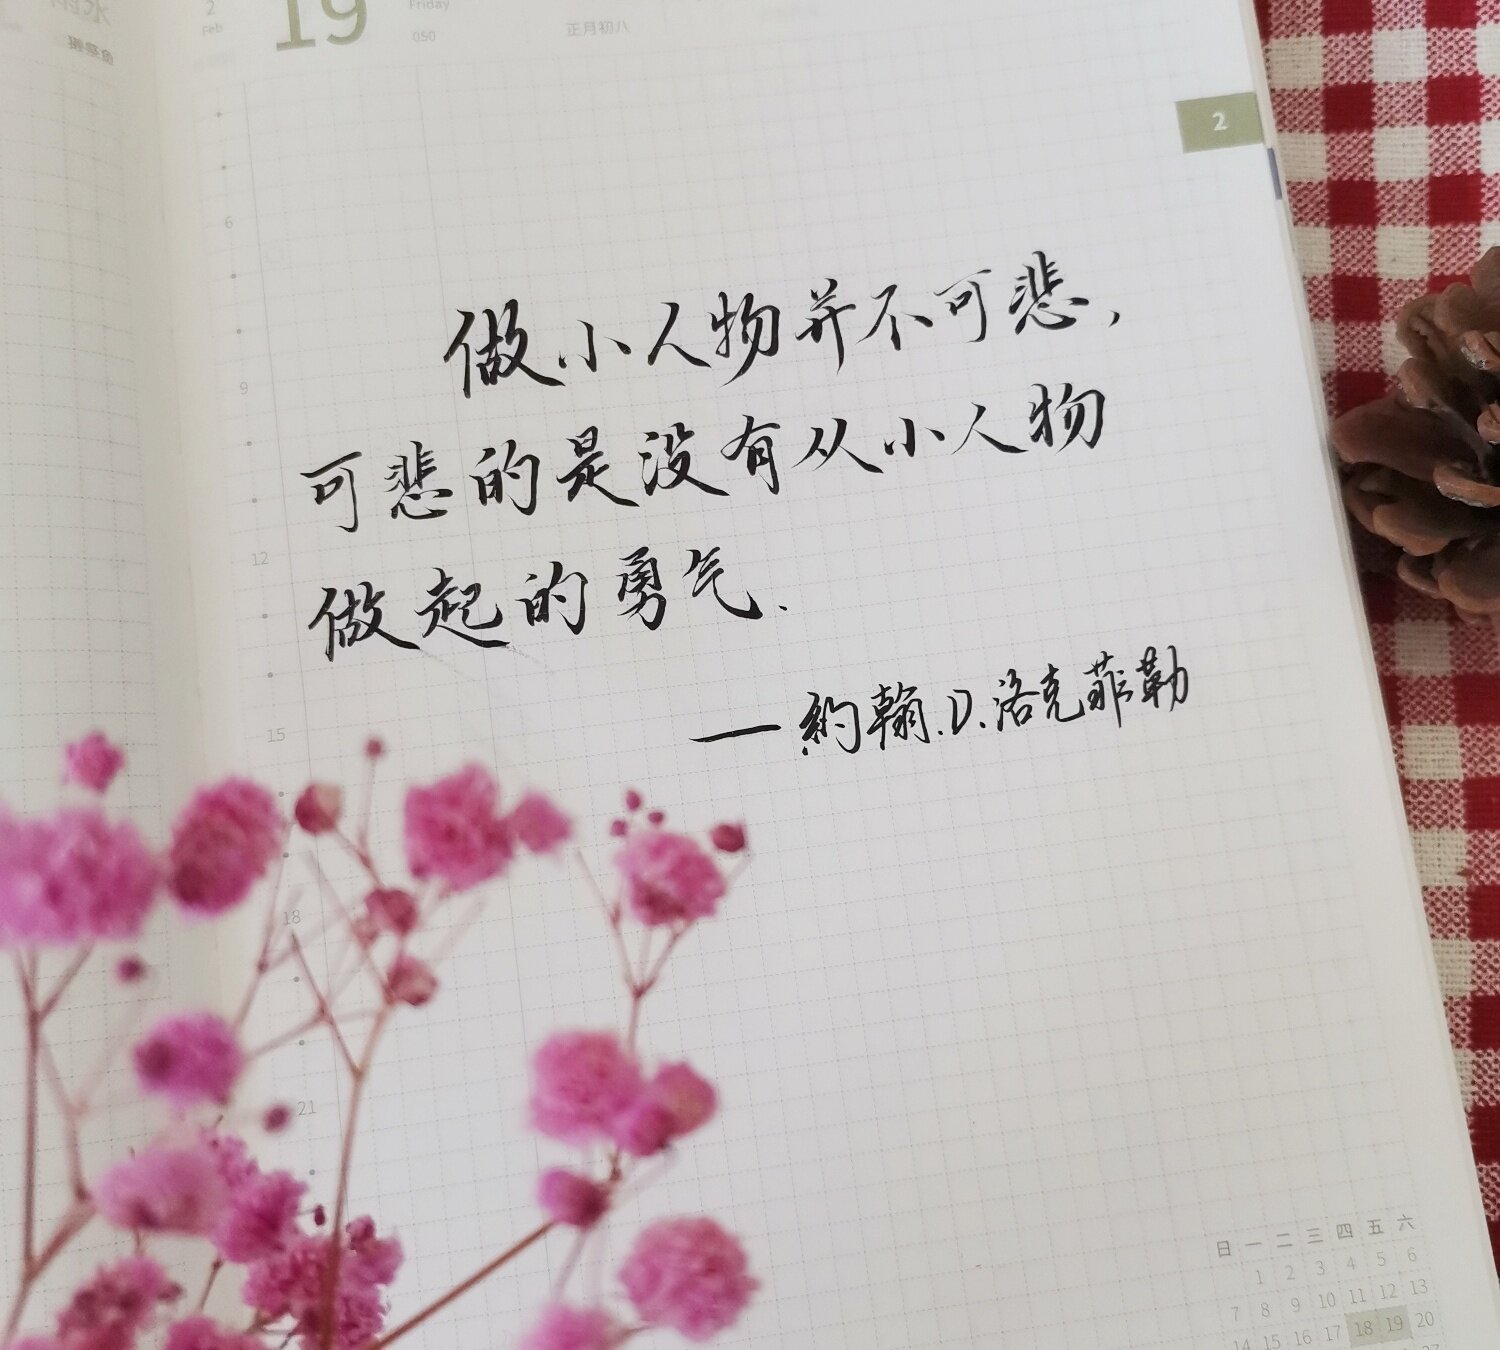 2
Feb
19
Friday
050
正月初八
2
6
9
12
15
18
21
做小人物并不可悲，
可悲的是没有从小人物
做起的勇气.
—約翰.D.洛克菲勒
日 一 二 三 四 五 六
1 2 3 4 5 6
7 8 9 10 11 12 13
14 15 16 17 18 19 20